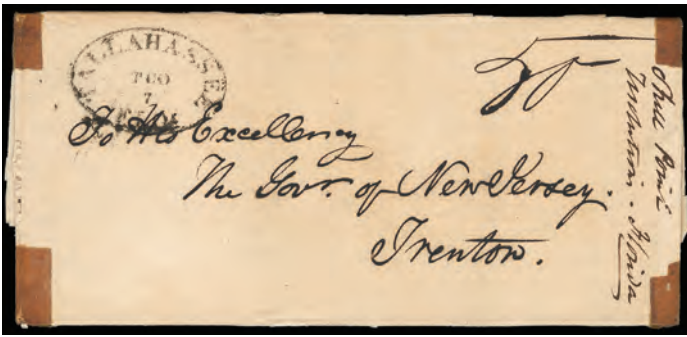 TALLAHASSEE
7
To His Excellency
The Govr. of New Jersey.
Trenton.
Resolutions - Florida